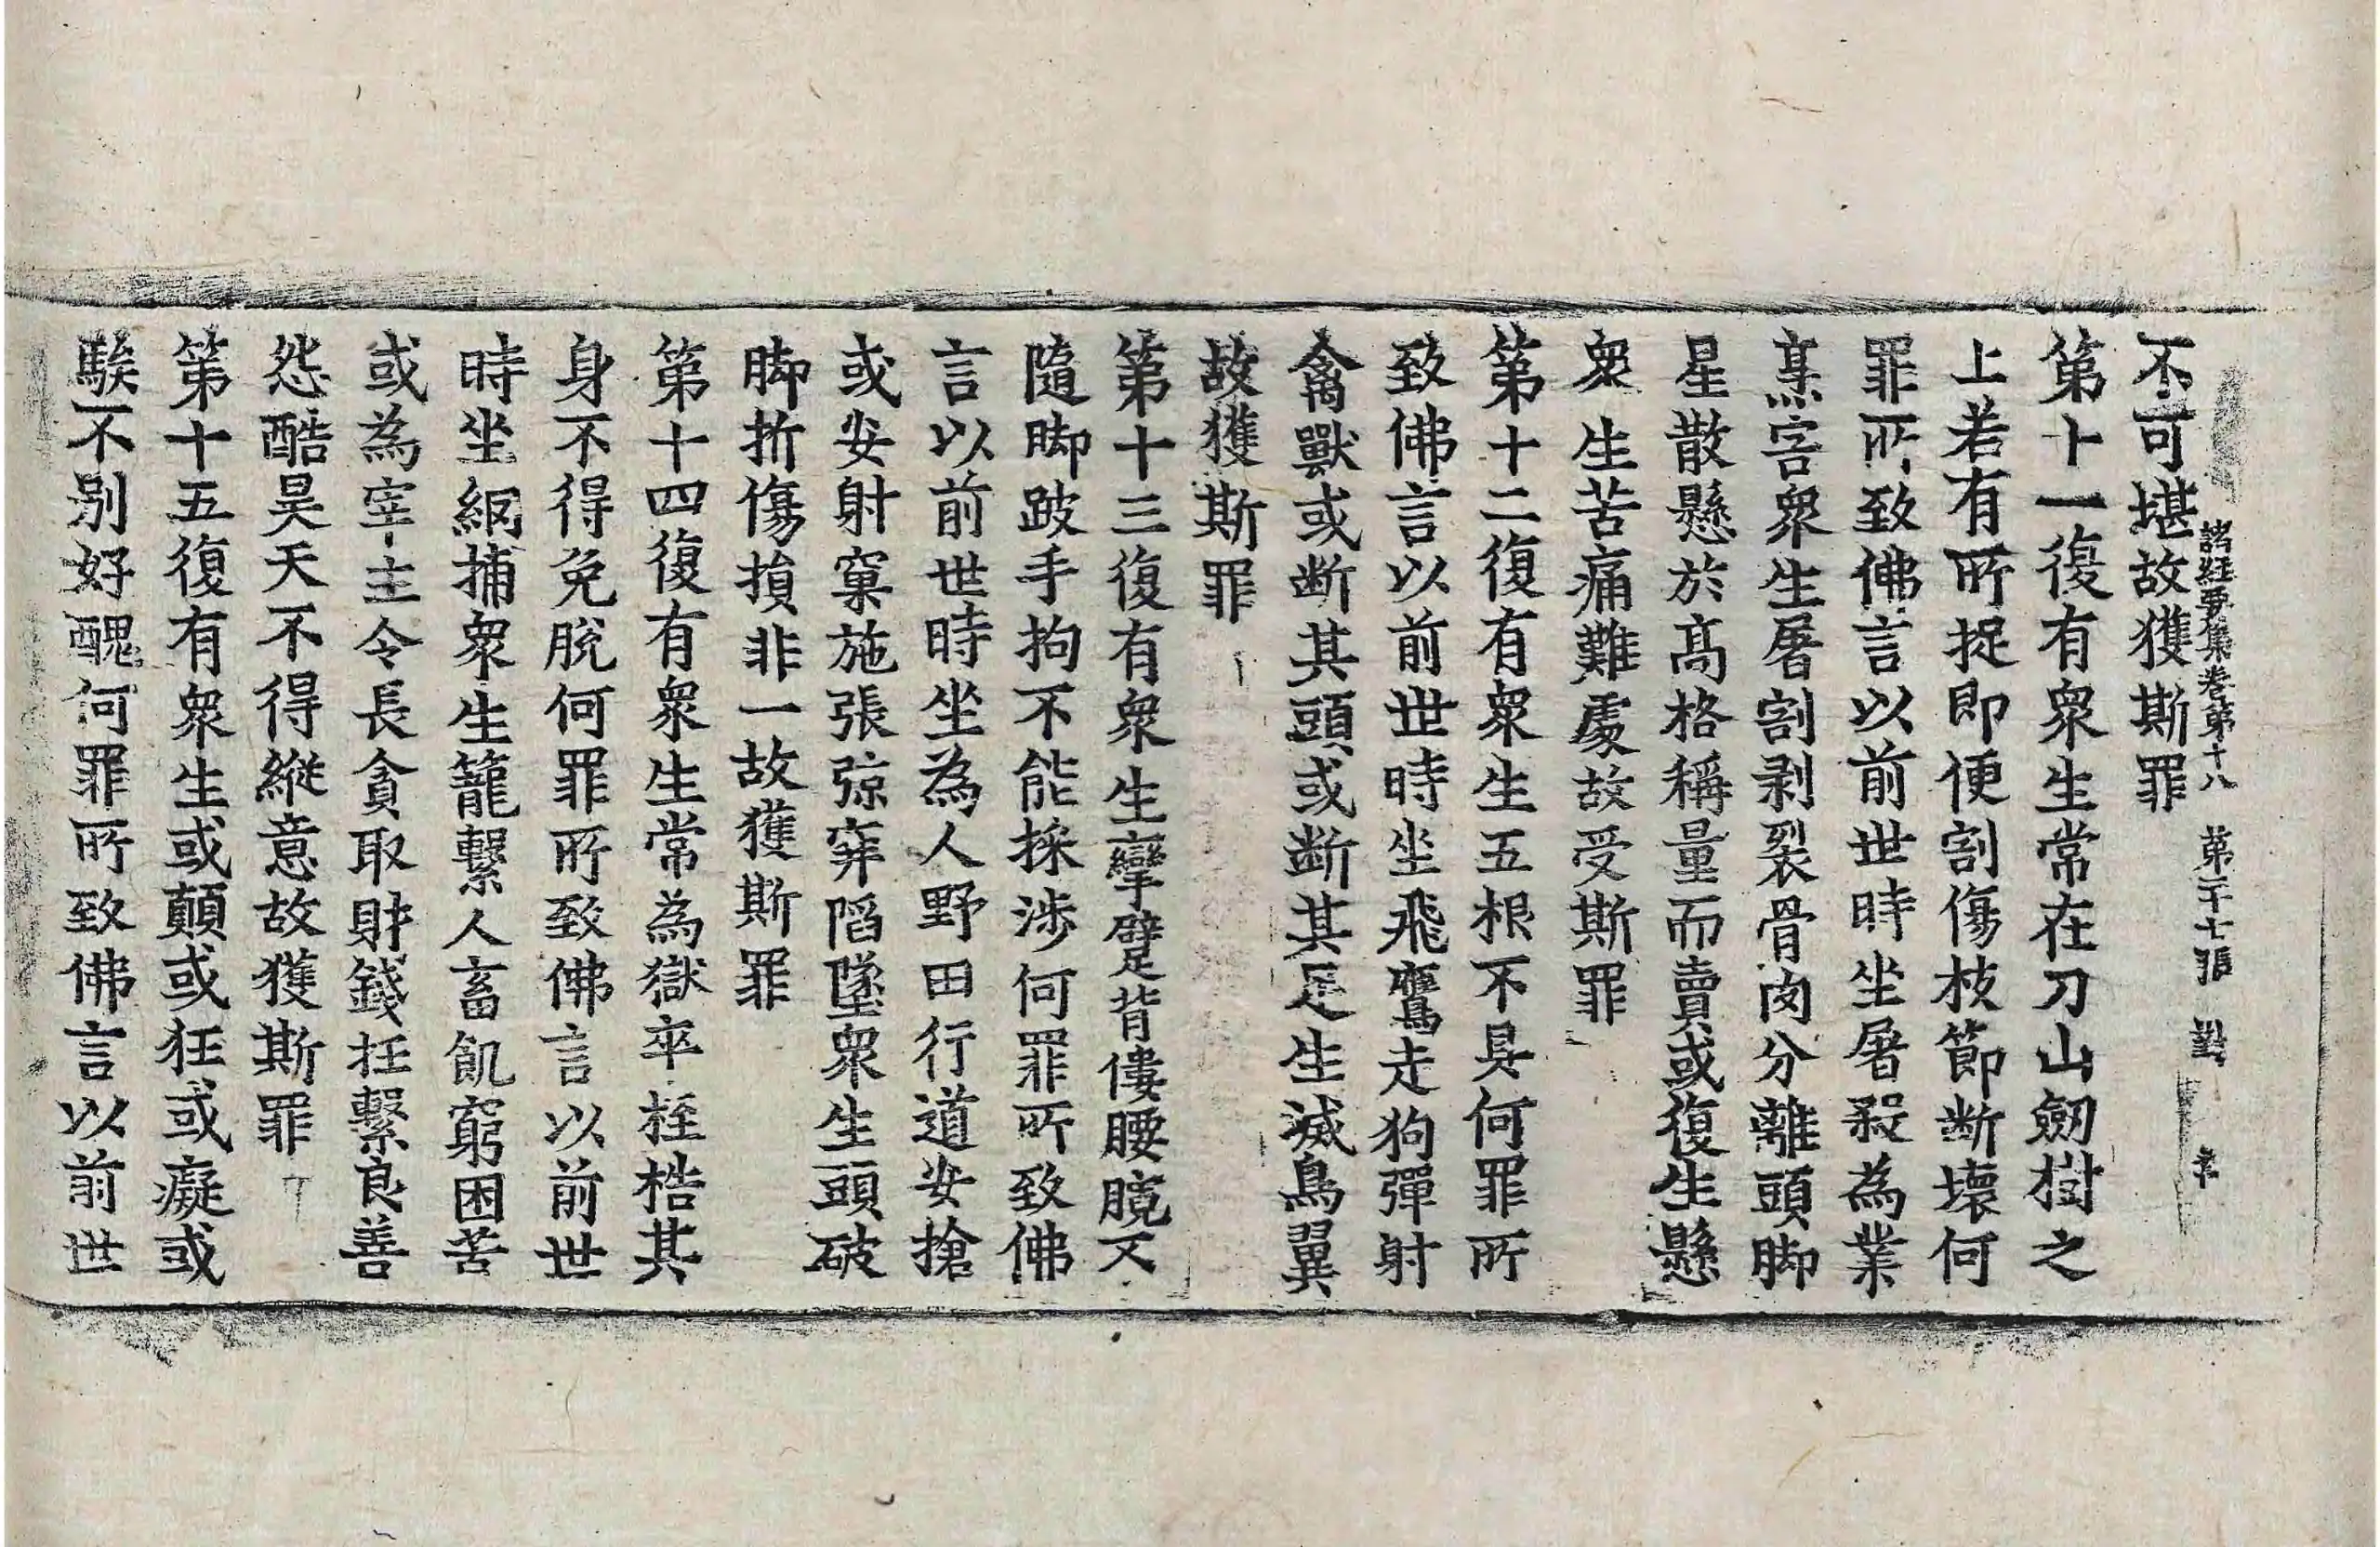 不可堪故獲斯罪
諸經要集卷第十八 第二十七張 對
第十一復有衆生常在刀山劒樹之
上若有所捉即便割傷枝節断壞何
罪所致佛言以前世時坐屠殺為業
烹害衆生屠割剥裂骨肉分離頭脚
星散懸於髙格稱量而賣或復生懸
衆生苦痛難處故受斯罪
第十二復有衆生五根不具何罪所
致佛言以前世時坐飛鷹走狗彈射
禽獸或断其頭或断其足生滅鳥翼
故獲斯罪
第十三復有衆生攣躄背僂腰髖不
隨脚跛手拘不能操涉何罪所致佛
言以前世時坐為人野田行道安搶
或安射窠施張弶穽陷墜衆生頭破
脚折傷損非一故獲斯罪
第十四復有衆生常為獄卒桎梏其
身不得免脫何罪所致佛言以前世
時坐網捕衆生籠繫人畜飢窮困苦
或為宰主令長貪取財錢抂繫良善
怨酷昊天不得縱意故獲斯罪
第十五復有衆生或顛或狂或癡或
騃不別好醜何罪所致佛言以前世